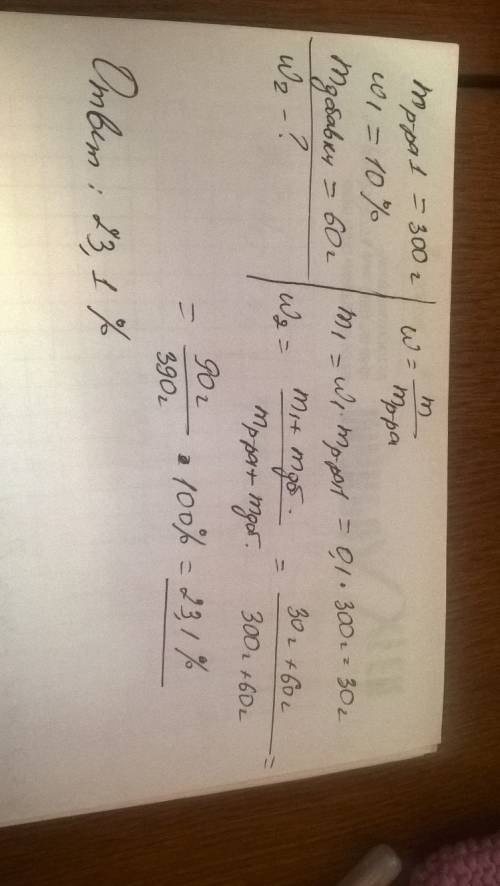 mр-ра1 = 300г
w1 = 10%
mдобавки = 60г
w2 - ?
w = m / mр-ра
m1 = w1 · mр-ра1 = 0,1 · 300г = 30г
w2 = m1 + mдоб. / mр-ра1 + mдоб. = 30г + 60г / 300г + 60г =
= 90г / 390г · 100% = 23,1%
Ответ: 23,1%